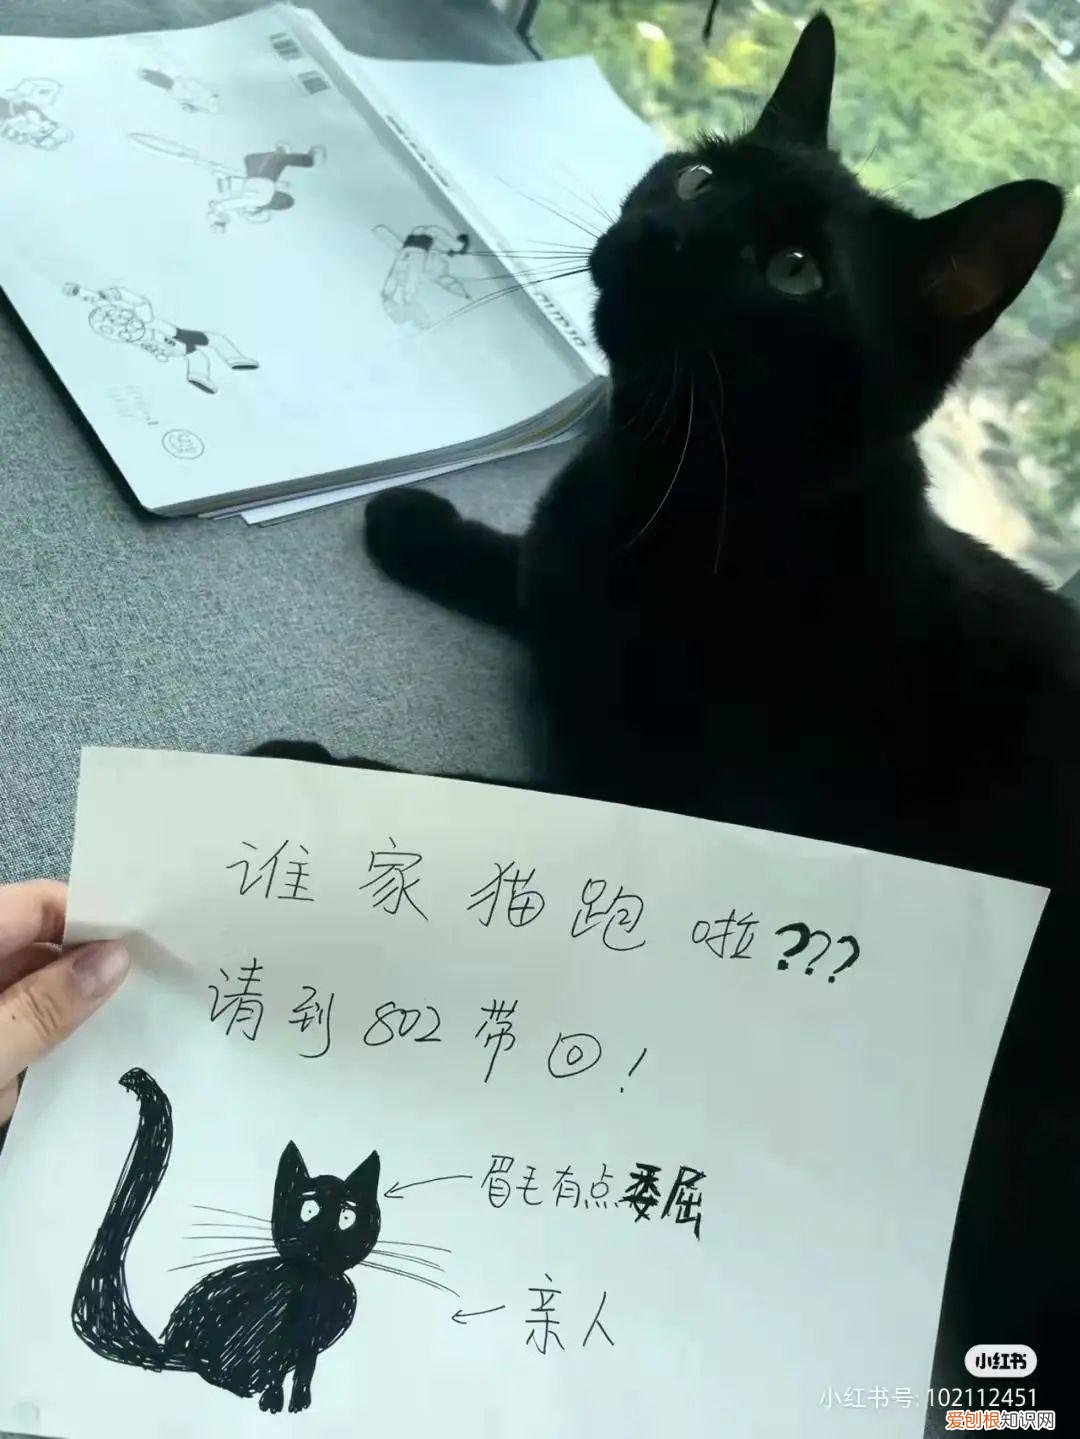 谁家猫跑啦???
请到802带回!
眉毛有点委屈
亲人
小红书
小红书号: 102112451
爱刨根知识网